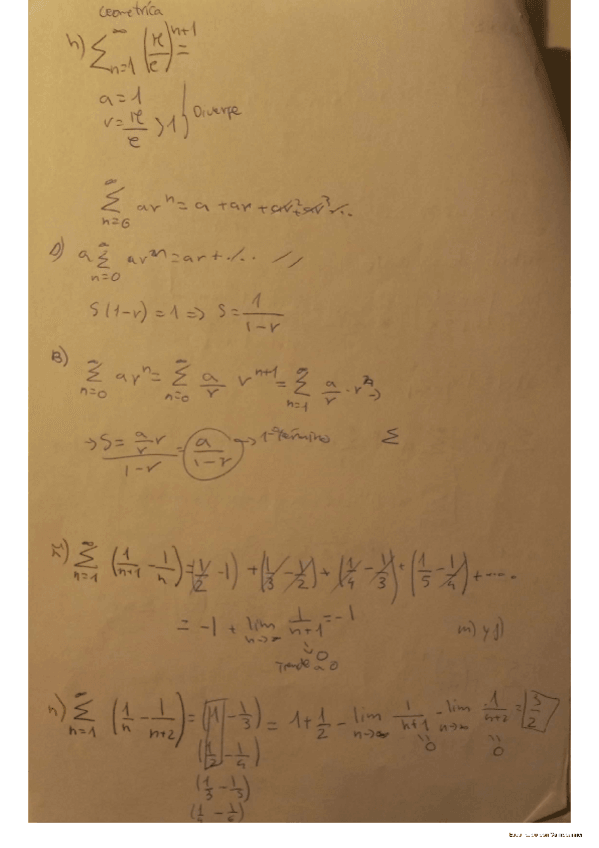 Geometrica
h) ∑_{n=1}^{∞} (π/e)^{n+1} =
a = 1
r = π/e > 1 } Diverge
∑_{n=0}^{∞} ar^n = a + ar + ar² + ar³ ...
D) a ∑_{n=0}^{∞} ar^{2n} = ar + ... //
S(1-r) = 1 => S = 1/(1-r)
B) ∑_{n=0}^{∞} ar^n = ∑_{n=0}^{∞} a/r r^{n+1} = ∑_{n=1}^{∞} a/r · r^n →
→ S = (a/r r)/(1-r) = a/(1-r) → 1er término ∑
∑_{n=1}^{∞} (1/(n+1) - 1/n) = (1/2 - 1) + (1/3 - 1/2) + (1/4 - 1/3) + (1/5 - 1/4) + ....
= -1 + lim_{n→∞} 1/(n+1) = -1 m) y j)
0
Tiende a 0
n) ∑_{n=1}^{∞} (1/n - 1/(n+2)) = (1 - 1/3) = 1 + 1/2 - lim_{n→∞} 1/(n+1) - lim_{n→∞} 1/(n+2) = 3/2
(1/2 - 1/4) 0 0
(1/3 - 1/5)
(1/4 - 1/6)